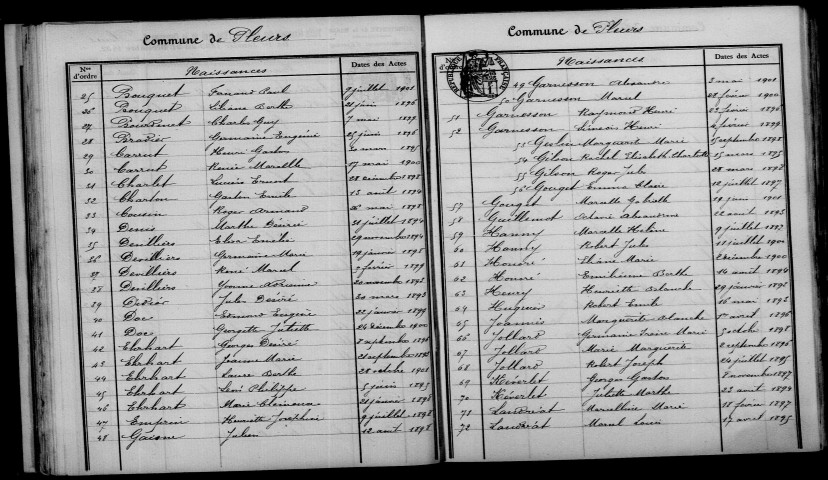 Commune de Pleurs
Nos d'ordre
Naissances
Dates des Actes
25 Bouquet Fernand Paul 9 juillet 1901
26 Bouquet Liliane Berthe 21 juin 1896
27 Bourdinet Charles Guy 7 mai 1899
28 Brodier Germaine Eugénie 25 juin 1896
29 Carrut Henri Gaston mars 1895
30 Carrut Renée Marcelle 17 mai 1900
31 Charlet Lucien Ernest 28 décembre 1898
32 Charton Gaston Emile 13 août 1894
33 Cousin Roger Armand 26 mai 1898
34 Denis Marthe Désirée 31 juillet 1894
35 Devilliers Elise Emilie 29 novembre 1894
36 Devilliers Germaine Marie 19 janvier 1898
37 Devilliers René Marcel 2 février 1899
38 Devilliers Yvonne 20 novembre 1893
39 Didier Jules Désiré 20 mars 1893
40 Doc Edmond Eugène 22 janvier 1899
41 Doc Georgette Juliette 24 décembre 1900
42 Ehrhart Georges Désiré 8 septembre 1896
43 Ehrhart Jeanne Marie 21 septembre 1893
44 Ehrhart Laure Berthe 28 octobre 1901
45 Ehrhart Léon Philippe 5 juin 1895
46 Ehrhart Marie Clémence 21 janvier 1898
47 Emprin Henriette Joséphine 9 juillet 1898
48 Gaisne Julien 12 août 1898
Commune de Pleurs
RÉPUBLIQUE FRANÇAISE
Naissances
Dates des Actes
49 Garnesson Alexandre 3 mai 1901
50 Garnesson Marcel 28 février 1900
51 Garnesson Raymond Henri 22 février 1896
52 Garnesson Simon Henri février 1899
53 Marguerite Marie septembre 1898
54 Gilson Rachel Elisabeth Charlotte 15 mars 1895
55 Gilson Roger Jules 28 mars 1898
56 Gouget Emma Claire 12 juillet 1897
57 Gouget Marcelle 19 juin 1901
58 Guillemot Alexandrine 22 août 1893
59 Hanny Marcelle Hélène 9 juillet 1897
60 Hanny Robert Jules 11 juillet 1901
61 Honoré Eliane Marie 2 décembre 1900
62 Honoré Emilienne Berthe 14 août 1894
63 Henry Henriette Blanche 29 janvier 1892
64 Huguin Robert Emile 16 mai 1893
65 Joannis Marguerite Blanche 1er août 1896
66 Jollard Germaine Irène Marie 5 octobre 1898
67 Jollard Marie Marguerite 2 septembre 1896
68 Jollard Robert Joseph 24 juillet 1895
69 Kéverlet Georges Gaston 8 novembre 1897
70 Kéverlet Juliette Marthe 22 août 1894
71 Landréat Marcelline Marie 18 février 1897
72 Landréat Marcel Louis 17 avril 1895